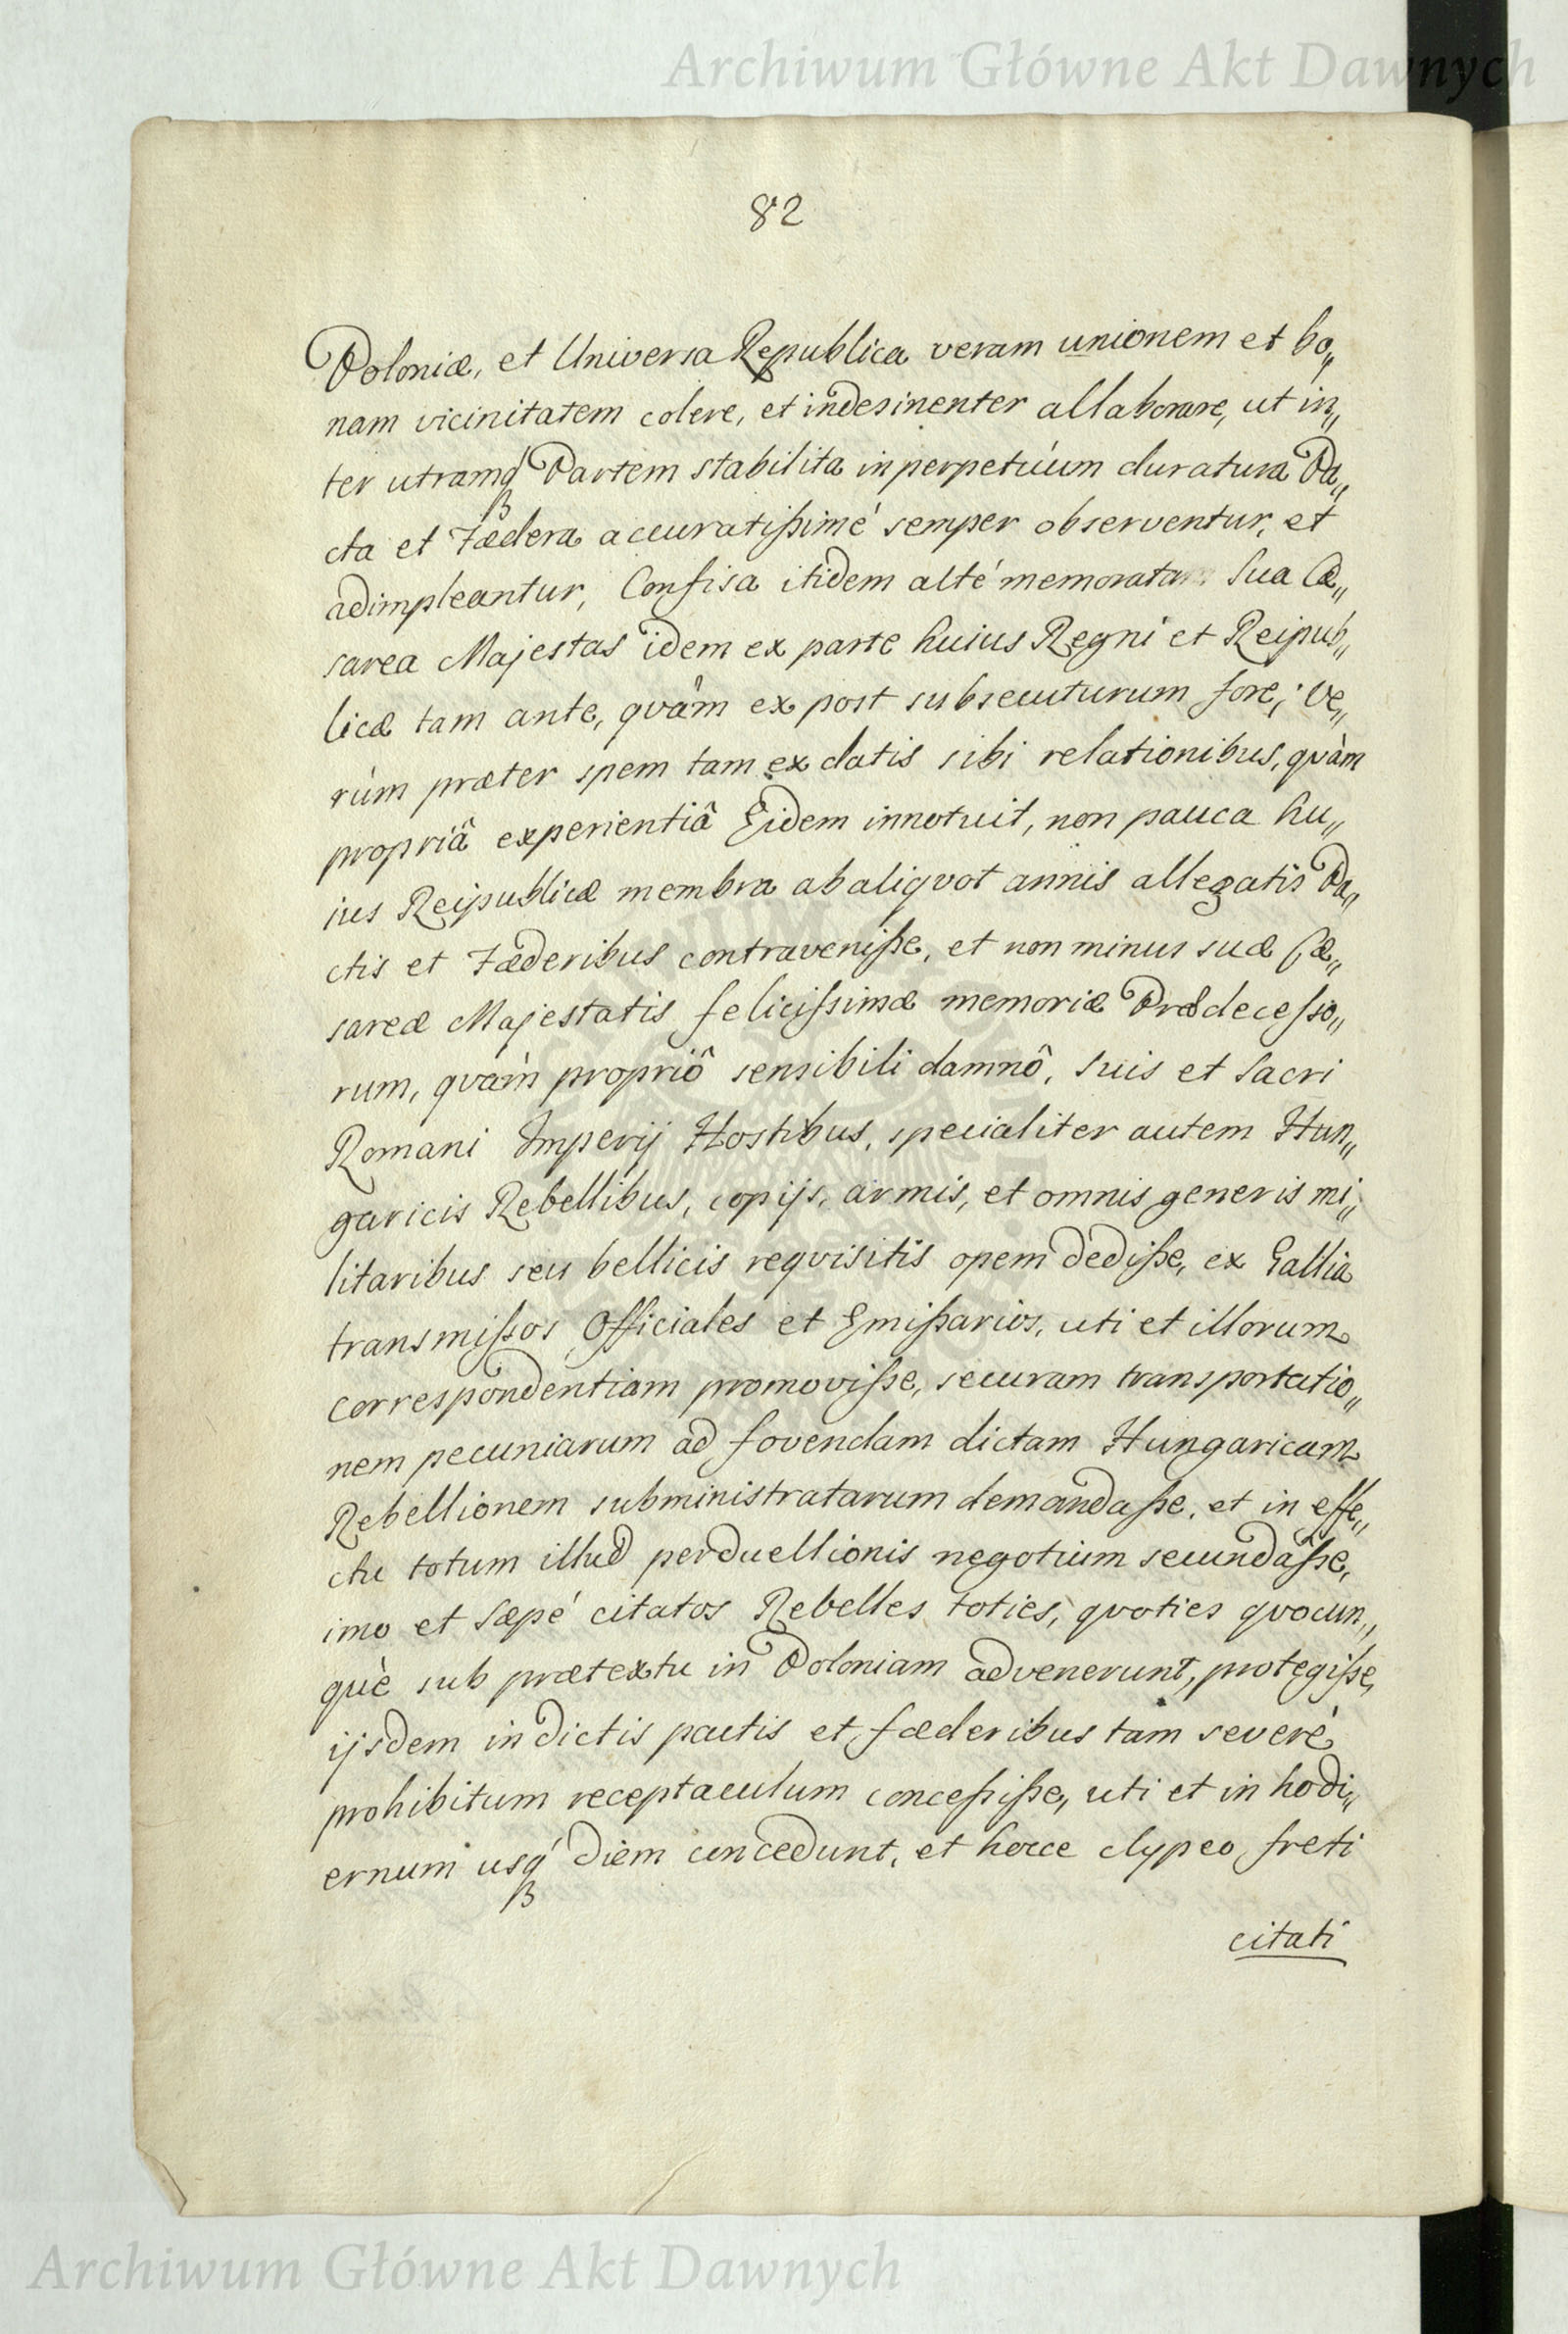 Archiwum Główne Akt Dawnych
82
Poloniæ, et Universa Republica veram unionem et bo„
nam vicinitatem colere, et indesinenter allaborare, ut in„
ter utramq́ꝫ Partem stabilita in perpetúum duratura Pa„
cta et Fædera accuratißimé semper observentur, et
adimpleantur, Confisa itidem alté memorata Sua Cæ„
sarea Majestas idem ex parte huius Regni et Reipub„
licæ tam ante, quàm ex post subsecuturum fore; Ve„
rùm præter spem tam ex datis sibi relationibus, quàm
propriâ experientiâ Eidem innotuit, non pauca hu„
ius Reipublicæ membra ab aliqvot annis allegatis Pa„
ctis et Fæderibus contraveniße, et non minus suæ Cæ„
sareæ Majestatis felicißimæ memoriæ Prædeceßo„
rum, quàm propriô sensibili damnô, suis et Sacri
Romani Imperij Hostibus, specialiter autem Hun„
garicis Rebellibus, copijs, armis, et omnis generis mi„
litaribus seu bellicis reqvisitis opem dediße, ex Gallia
transmißos Officiales et Emißarios, uti et illorum
correspondentiam promoviße, securam transportatio„
nem pecuniarum ad fovendam dictam Hungaricam
Rebellionem subministratarum demandaße, et in effe„
ctu totum illud perduellionis negotium secundaße,
imo et sæpé citatos Rebelles toties, qvoties qvocun„
què sub prætextu in Poloniam advenerunt, protegiße,
ijsdem in dictis pactis et fæderibus tam severè
prohibitum receptaculum conceßiße, uti et in hodi„
ernum usq́ꝫ diem concedunt, et hocce clypeo freti
citati
Archiwum Główne Akt Dawnych